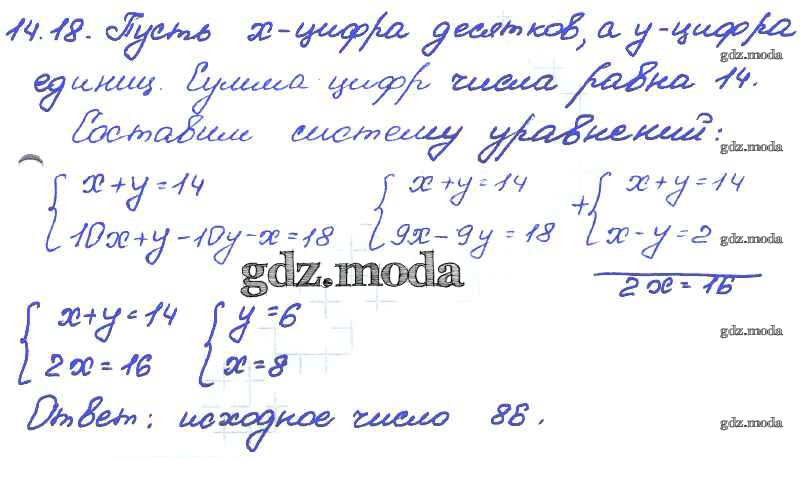 14.18. Пусть x-цифра десятков, а y-цифра
gdz.moda
единиц. Сумма цифр числа равна 14.
Составим систему уравнений:
gdz.moda
x+y=14
10x+y-10y-x=18
x+y=14
9x-9y=18
+
x+y=14
x-y=2
gdz.moda
2x=16
gdz.moda
x+y=14
2x=16
y=6
x=8
gdz.moda
Ответ: исходное число 86.
gdz.moda